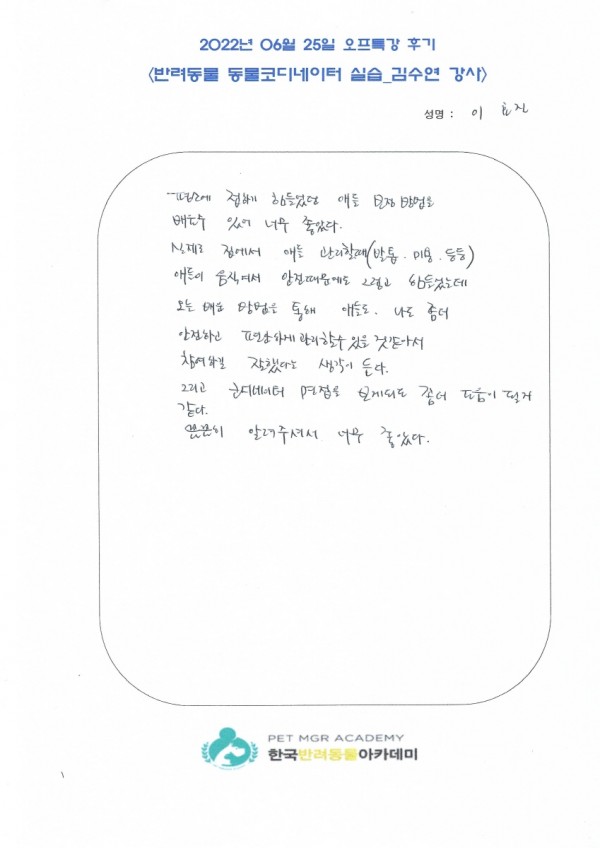 2022년 06월 25일 오프특강 후기
<반려동물 동물코디네이터 실습_김수연 강사>
성명 : 이 효진
평소에 접하기 힘들었던 애들 보정 방법을
배울수 있어 너무 좋았다.
실제로 집에서 애들 관리할때(발톱. 미용. 등등)
애들이 움직여서 안전때문에도 그렇고 힘들었는데
오늘 배운 방법을 통해 애들도. 나도 좀더
안전하고 편안하게 관리할수 있을 것같아서
참여하길 잘했다는 생각이 든다.
그리고 코디네이터 면접을 보게되도 좀더 도움이 될거
같다.
꼼꼼히 알려주셔서 너무 좋았다.
PET MGR ACADEMY
한국반려동물아카데미